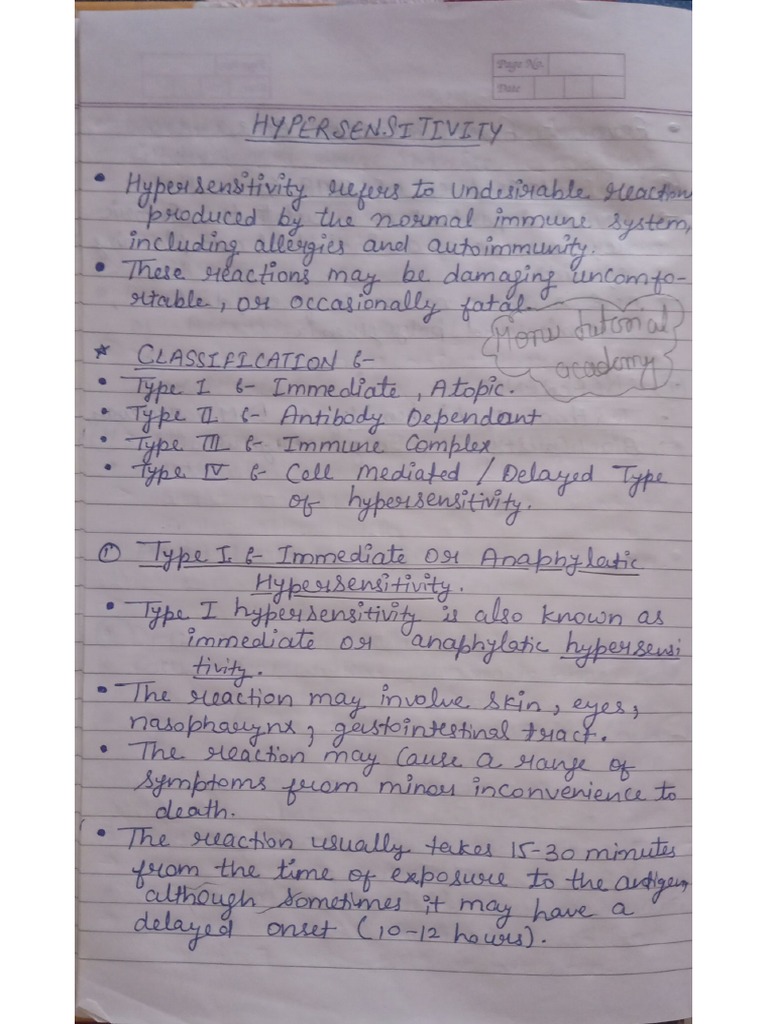 Page No.
Date
HYPERSENSITIVITY
• Hypersensitivity refers to undesirable reaction
produced by the normal immune system,
including allergies and autoimmunity.
• These reactions may be damaging uncomfo-
rtable, or occasionally fatal.
Monu tutorial
academy
* CLASSIFICATION :-
• Type I :- Immediate, Atopic.
• Type II :- Antibody Dependant
• Type III :- Immune Complex
• Type IV :- Cell mediated / Delayed Type
of hypersensitivity.
① Type I :- Immediate or Anaphylatic
Hypersensitivity.
• Type I hypersensitivity is also known as
immediate or anaphylatic hypersensi
tivity.
• The reaction may involve skin, eyes,
nasopharynx, gastointestinal tract.
• The reaction may cause a range of
symptoms from minor inconvenience to
death.
• The reaction usually takes 15-30 minutes
from the time of exposure to the antigen,
although sometimes it may have a
delayed onset (10-12 hours).